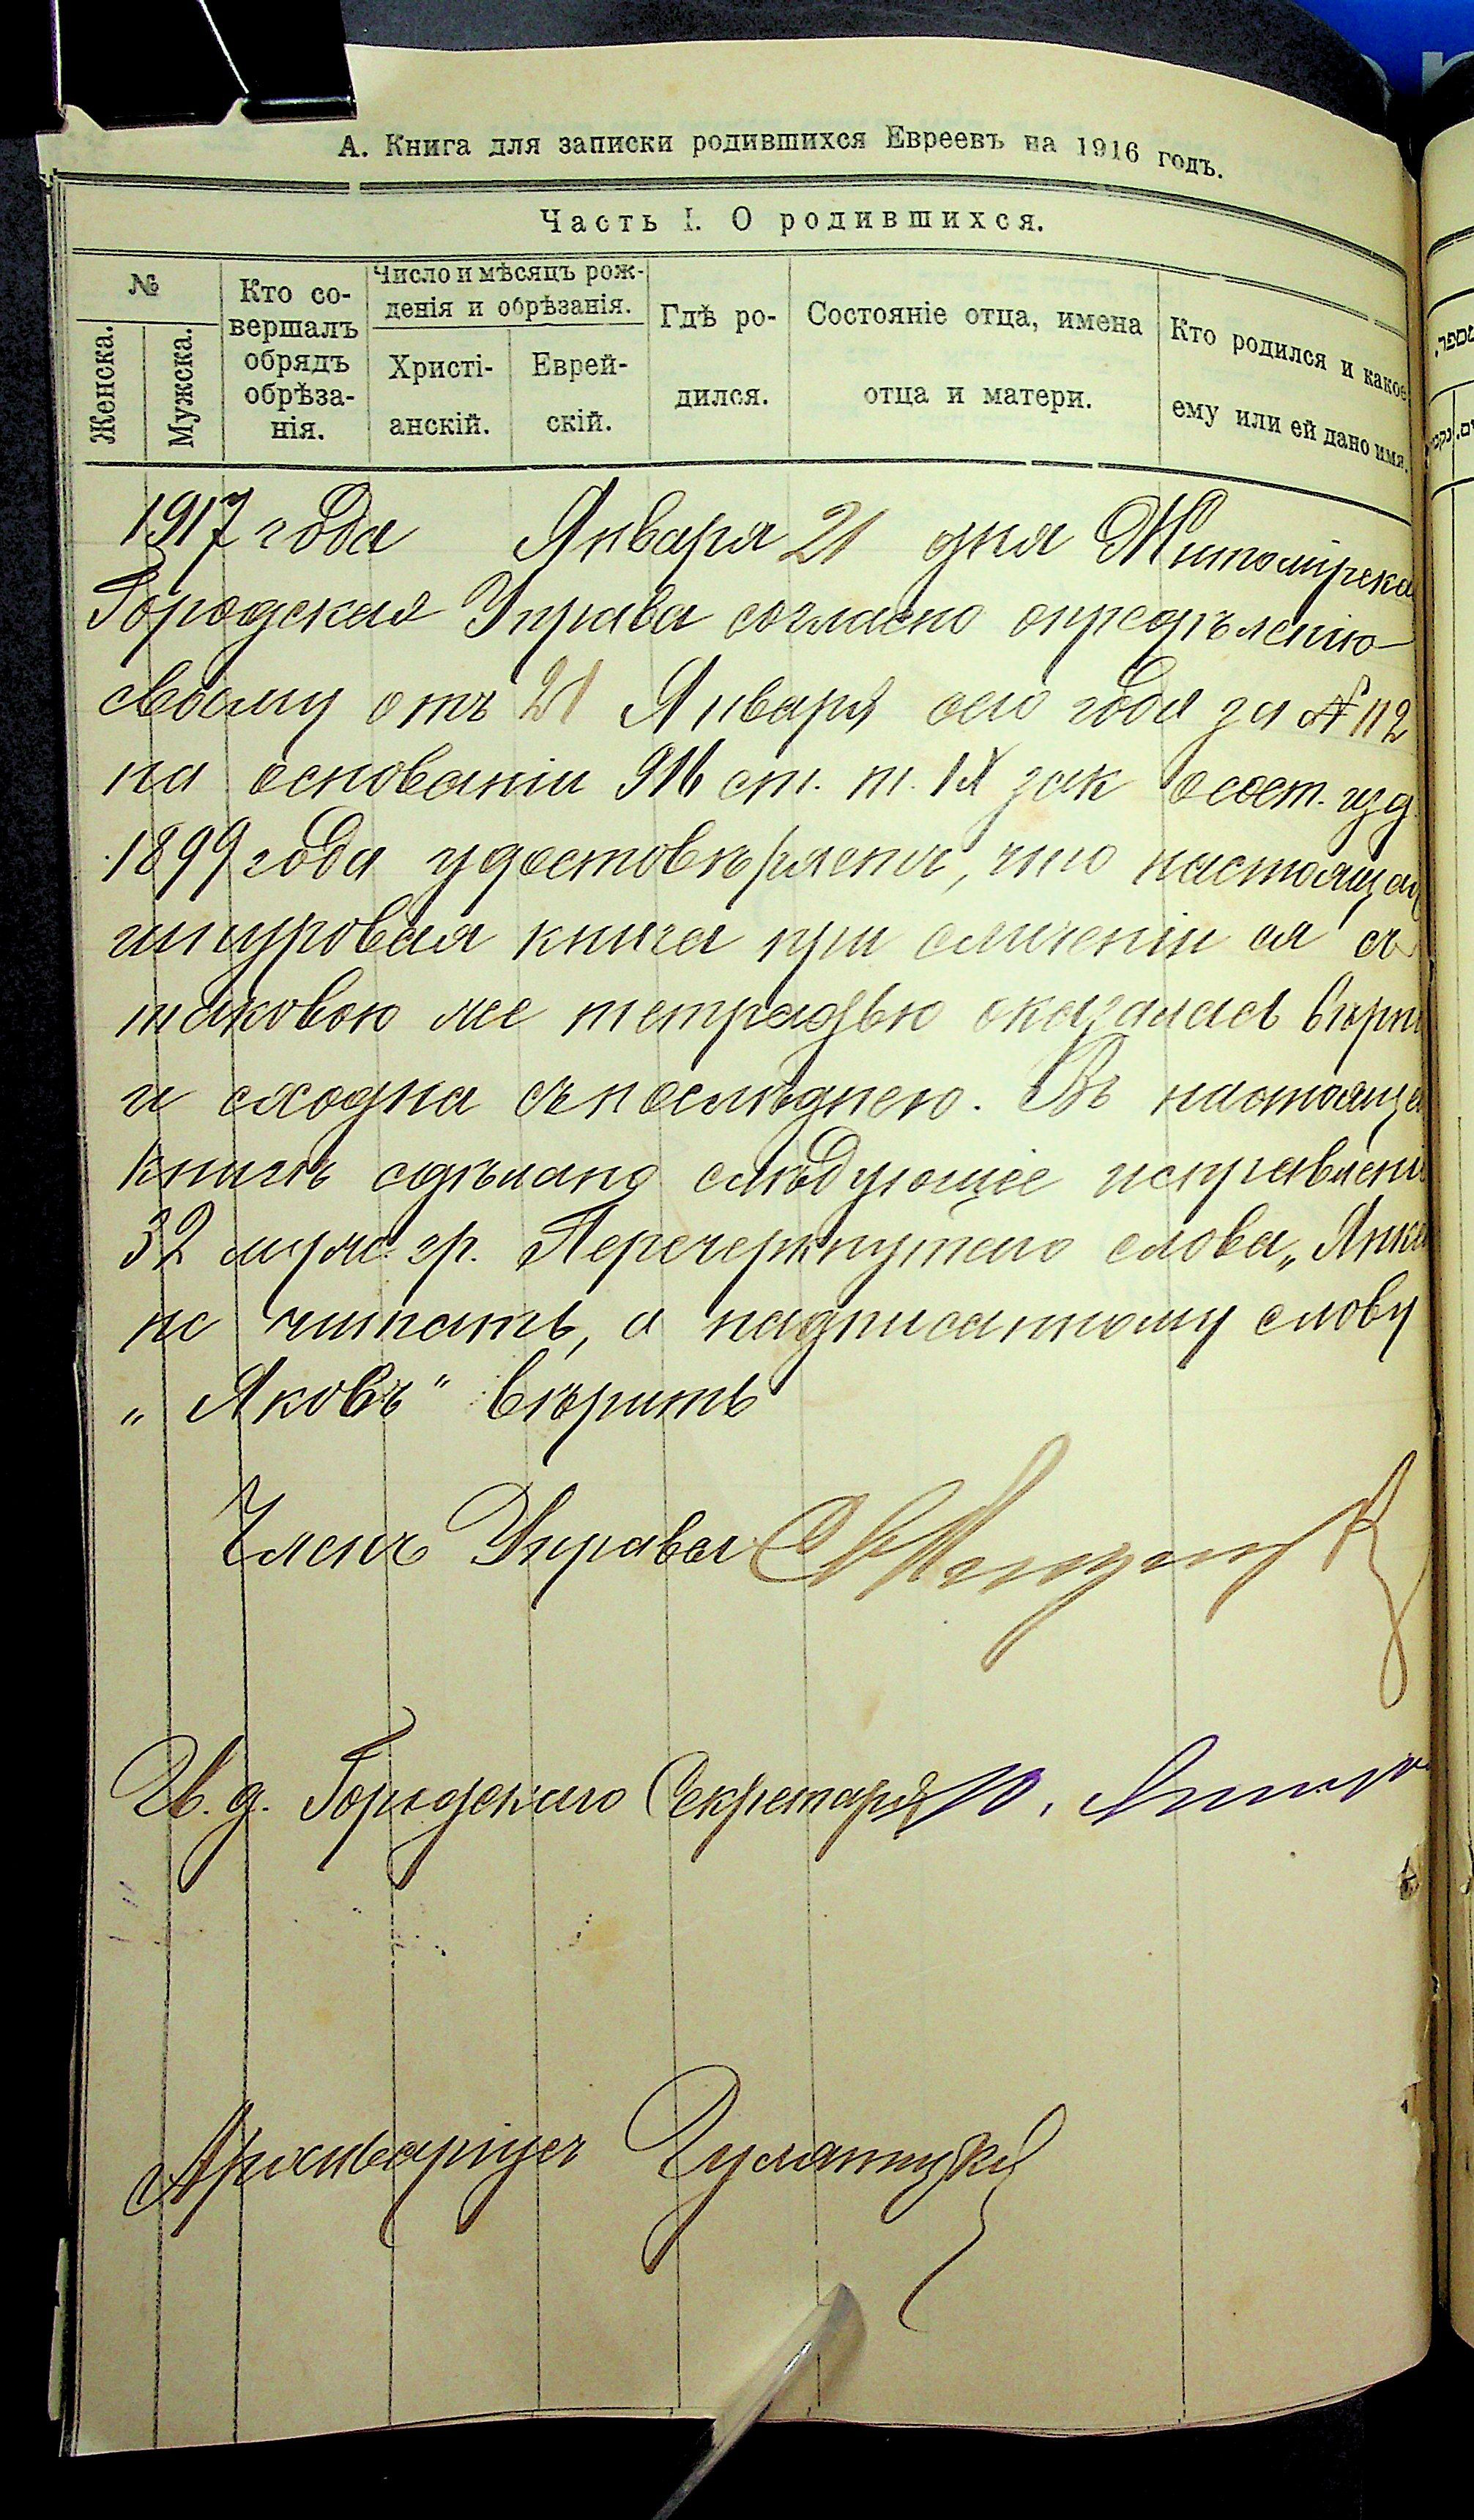 А. Книга для записки родившихся Евреевъ на 1916 годъ.
Часть I. О родившихся.
№
Женска.
Мужска.
Кто со-
вершалъ
обрядъ
обрѣза-
нія.
Число и мѣсяцъ рож-
денія и обрѣзанія.
Христі-
анскій.
Еврей-
скій.
Гдѣ ро-
дился.
Состояніе отца, имена
отца и матери.
Кто родился и какое
ему или ей дано имя.
1917 года Января 21 дня Житомірская
Городская Управа согласно опредѣленію
своему отъ 21 Января сего года за № 112
на основаніи 916 ст. т. IX зак о сост. изд.
1899 года удостовѣряетъ, что настоящая
шнуровая книга при сличеніи ея съ
таковою же тетрадью оказалась вѣрна
и сходна съ послѣднею. Въ настоящей
книгѣ сдѣлано слѣдующіе исправленія
32 муж. гр. Перечеркнутаго слова „Янкель
не читать, а надписанному слову
„Яковъ" вѣрить
Членъ Управы
Ив. д. Городского Секретаря Ю.
Архиваріусъ